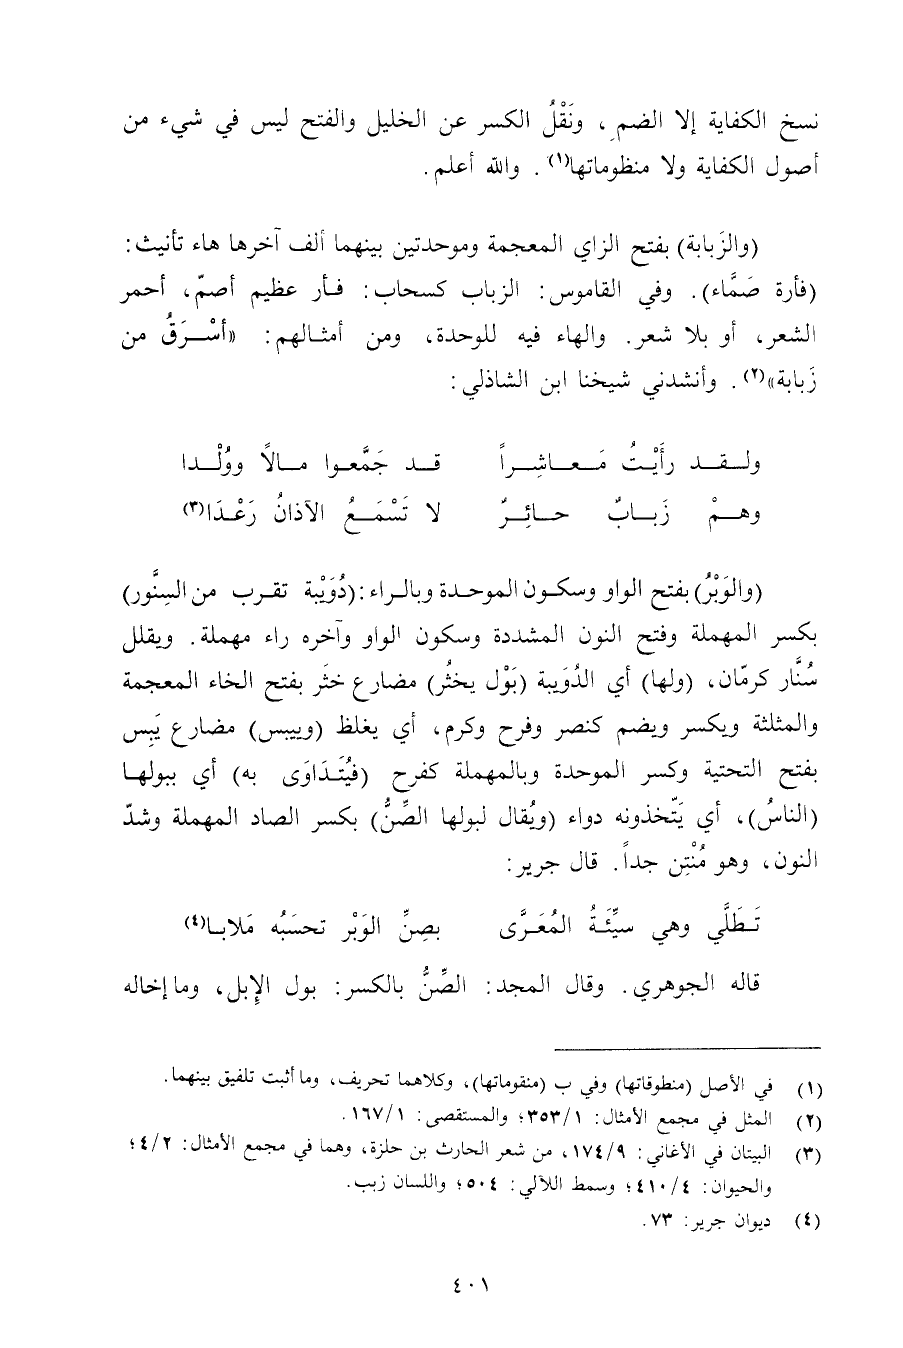 نسخ الكفاية إلا الضم، ونَقْلُ الكسر عن الخليل والفتح ليس في شيء من
أصول الكفاية ولا منظوماتها(١). والله أعلم.
(والزَبابة) بفتح الزاي المعجمة وموحدتين بينهما ألف آخرها هاء تأنيث:
(فأرة صَمَّاء). وفي القاموس: الزباب كسحاب: فأر عظيم أصمّ، أحمر
الشعر، أو بلا شعر. والهاء فيه للوحدة، ومن أمثالهم: «أسْرَقُ من
زَبابة»(٢). وأنشدني شيخنا ابن الشاذلي:
ولقد رأَيْتُ مَعاشِراً قد جَمَّعوا مالاً ووُلْدا
وهمْ زَبابٌ حائِرٌ لا تَسْمَعُ الآذانُ رَعْدَا(٣)
(والوَبْرُ) بفتح الواو وسكون الموحدة وبالراء: (دُوَيْبة تقرب من السِنَّور)
بكسر المهملة وفتح النون المشددة وسكون الواو وآخره راء مهملة. ويقلل
سُنَّار كرمّان، (ولها) أي الدُوَيبة (بَوْل يخثُر) مضارع خثَر بفتح الخاء المعجمة
والمثلثة ويكسر ويضم كنصر وفرح وكرم، أي يغلظ (وييبس) مضارع يَبِس
بفتح التحتية وكسر الموحدة وبالمهملة كفرح (فيُتَدَاوَى به) أي ببولها
(الناسُ)، أي يَتّخذونه دواء (ويُقال لبولها الصِّنُّ) بكسر الصاد المهملة وشدّ
النون، وهو مُنْتِن جداً. قال جرير:
تَطَلَّي وهي سيِّئَةُ المُعَرَّى بصِنِّ الوَبْر تحسَبُه مَلابا(٤)
قاله الجوهري. وقال المجد: الصِّنُّ بالكسر: بول الإبل، وما إخاله
(١) في الأصل (منطوقاتها) وفي ب (منقوماتها)، وكلاهما تحريف، وما أثبت تلفيق بينهما.
(٢) المثل في مجمع الأمثال: ٣٥٣/١؛ والمستقصى: ١٦٧/١.
(٣) البيتان في الأغاني: ١٧٤/٩، من شعر الحارث بن حلزة، وهما في مجمع الأمثال: ٤/٢؛
والحيوان: ٤١٠/٤؛ وسمط اللآلي: ٥٠٤؛ واللسان زبب.
(٤) ديوان جرير: ٧٣.
٤٠١